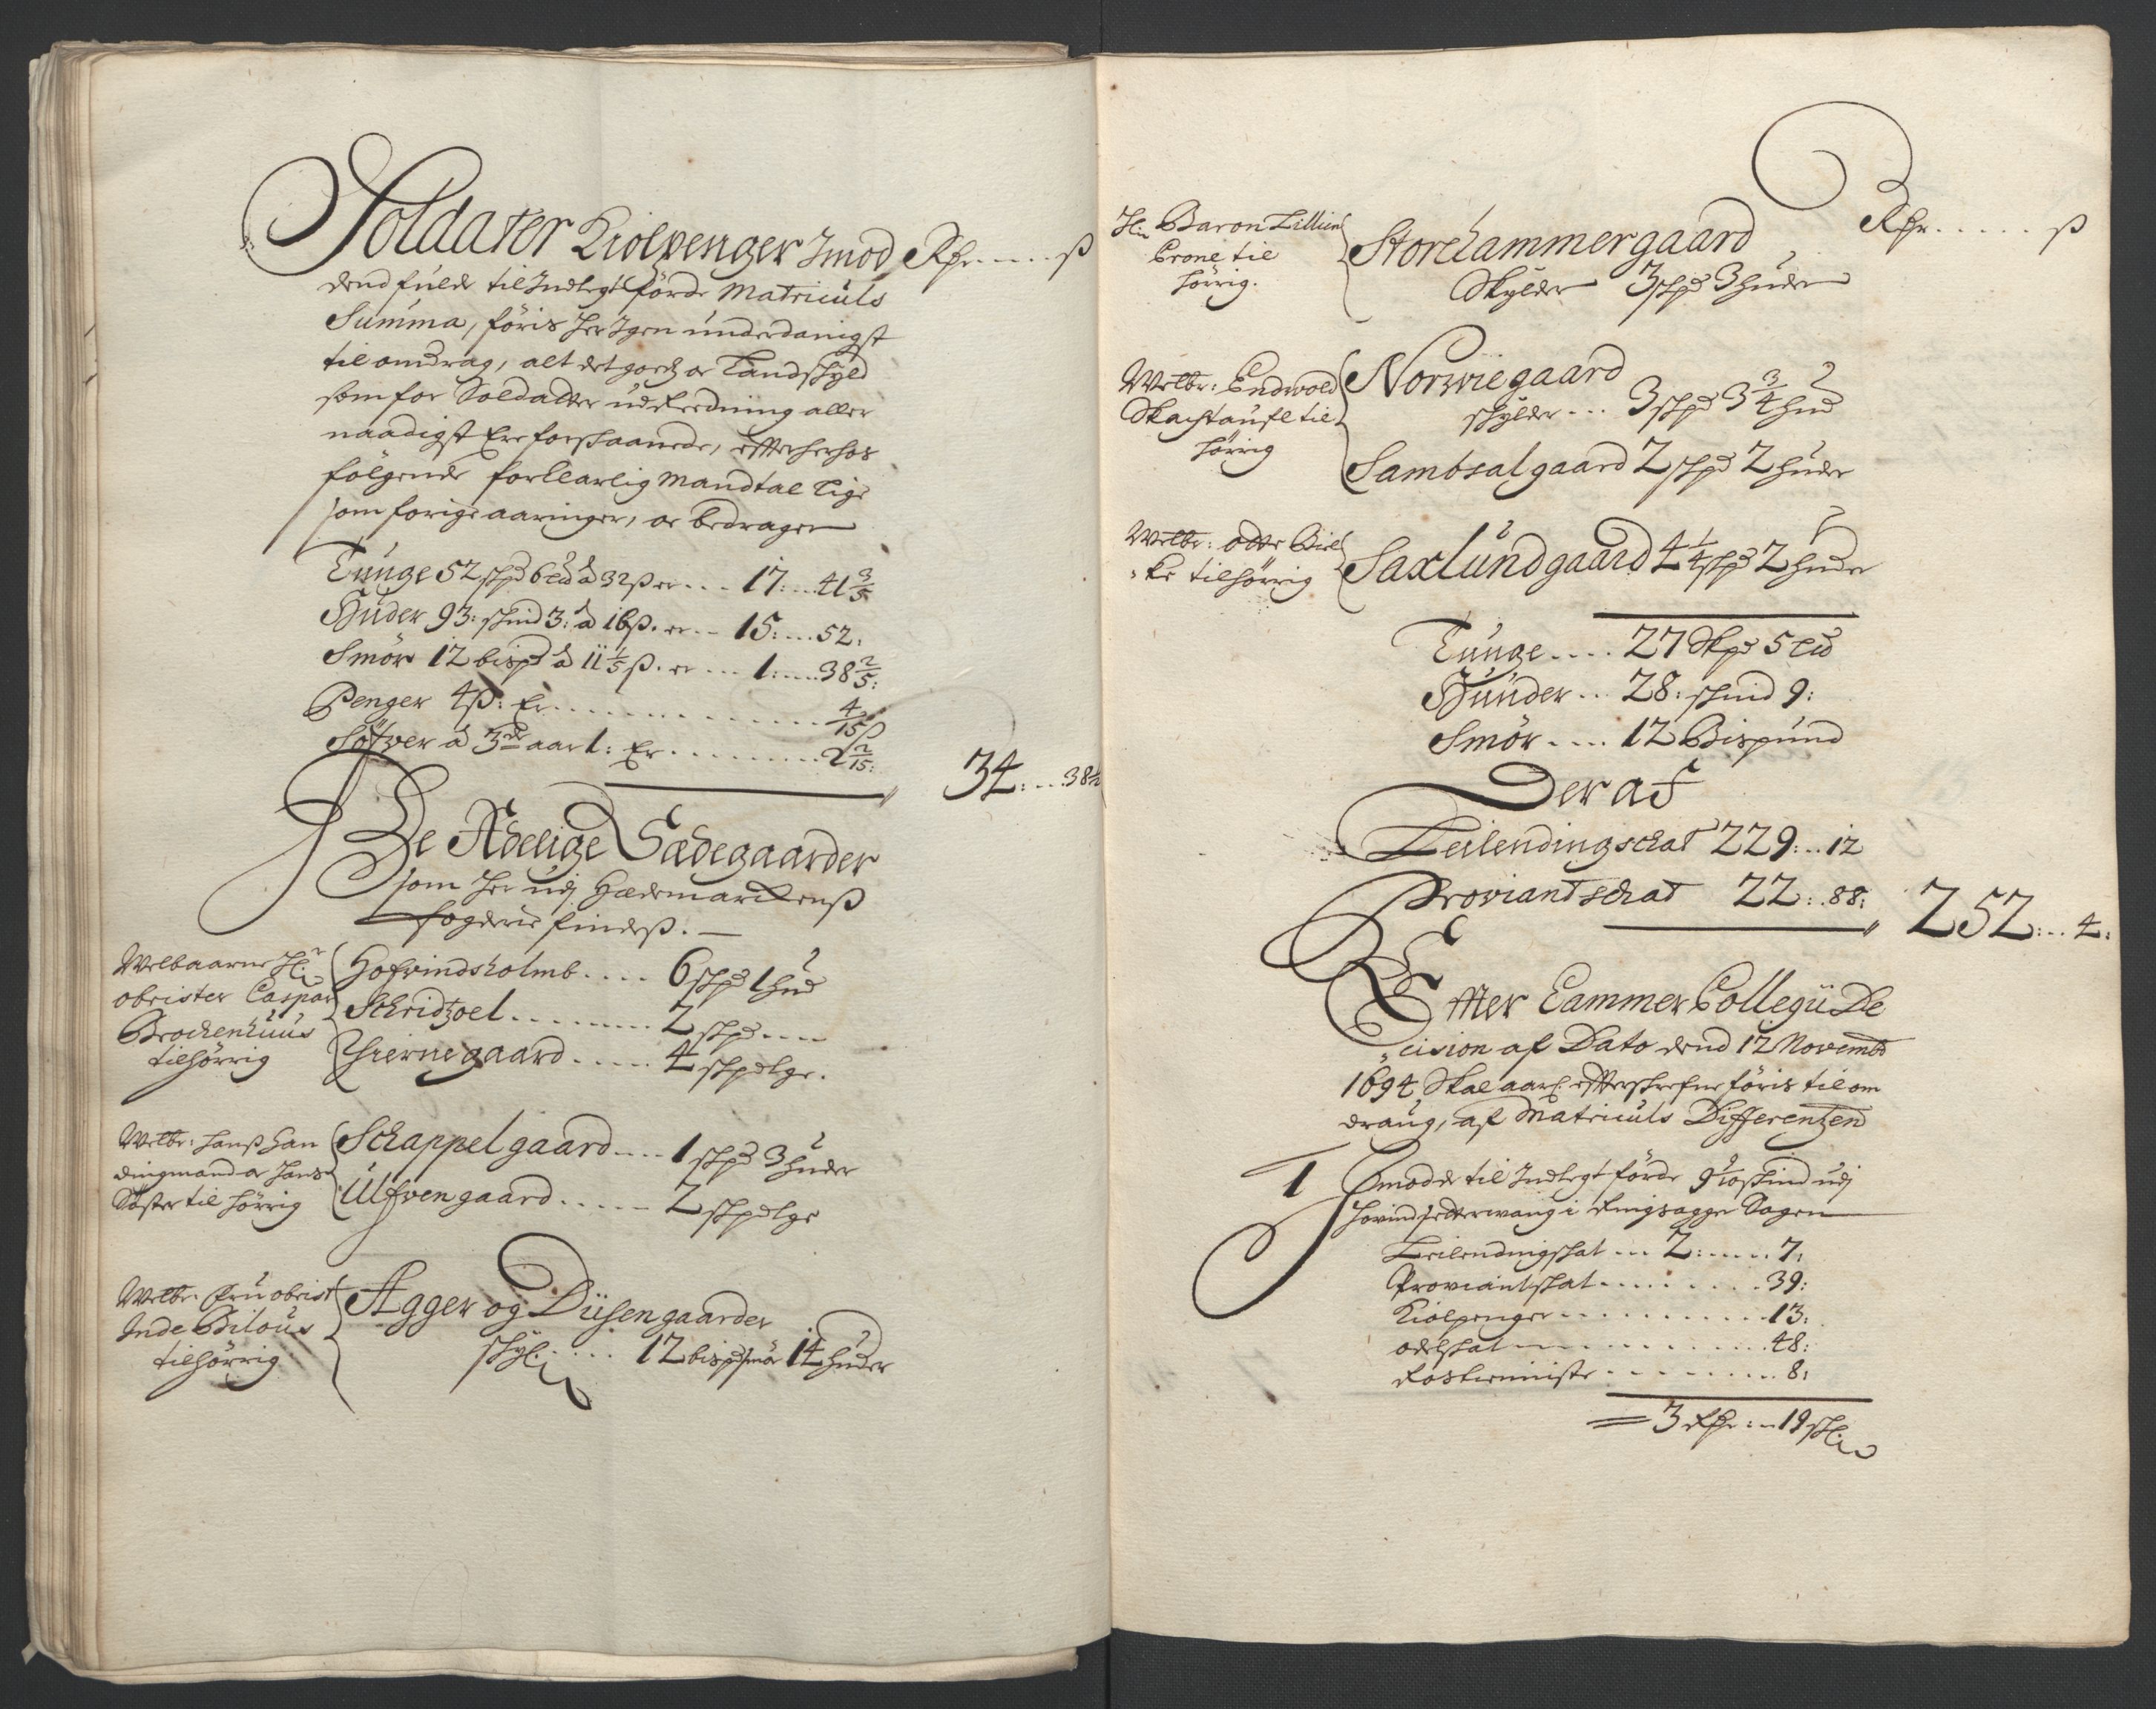 Soldater Kiolpenger Imod Rdr.....ß
dend fulde til Indtegt förde Matriculs
Summa, föris her Igen underdanigst
til omdrag, alt det gods oc Landschyld
som for Soldatter udreedning aller
naadigst Ere forschaanede, effter herhos
fölgende forklarlig Mandtal lige
som forige aaringer, oc bedrager
Tunge 52 schpd 6 Lid à 32 ß er.... 17:...41 3/5
Huder 93: schind 3: à 16 ß. er... 15:....52:
Smör 12 bispd à 11 1/5 ß. er.... 1:.....38 2/5:
Penger 4 ß: Er............... 4/15 ß
Söfver à 3de aar 1: Er.......... 2 2/15:
34:....38 1/2
De Adelige Sædegaarder
som her udj Hedemarckens
fogderie findes.
Welbaarne Hr
obrister Caspar
Brockenhuus
tilhörrig
Hofvindsholmb.... 6 schpd 1 hud
Schridzoel......... 2 schpd....
Hiernegaard..... 4 schpd tge.
Welbr: Hans Han
dingmand oc Hans
Söster til hörrig
Schappelgaard.... 1 schpd 3 huder
Ulfvengaard..... 2 schpd tge
Welbr: fru obrist
Inde Bilous
tilhörrig
Agger og Düsengaarder
schyl:..... 12 bispd smör 14 huder
Rdr......ß
Hr Baron Lillien
Crone til
hörrig.
Storhammergaard
Skylder 3 schpd 3 huder
Welbr: Endvold
Skachtaufl til
hörrig
Norwiegaard
schylder... 3 schpd 3 3/4 hud
Sambsalgaard 2 schpd 2 huder
Welbr: otte Biel
ke tilhörrig
Saxlundgaard 4 1/4 schpd 2 huder
Tunge.... 27 Skpd 5 Lid
Huuder... 28: schind 9:
Smör.... 12 Bispund
Deraf
Leilendingschat 229:..12
Proviantschat 22:.88:
252:...4:
Effter CammerCollegii De
cision af Dato dend 12 Novembr
1694 Skal aarl: effterschrefne föris til om
draug, af Matriculs Differentzen
1 Imod de til Indtegt förde 9 1/10 schind udj
Hovindsetterwang i Ringsagger Sogen
Leilendingschat... 2:.....7:
Proviantschat.........39:
Kiolpenger...........13:
odelschat............48:
Rosteniniste.........8:
3 Rdr:...19 sch: